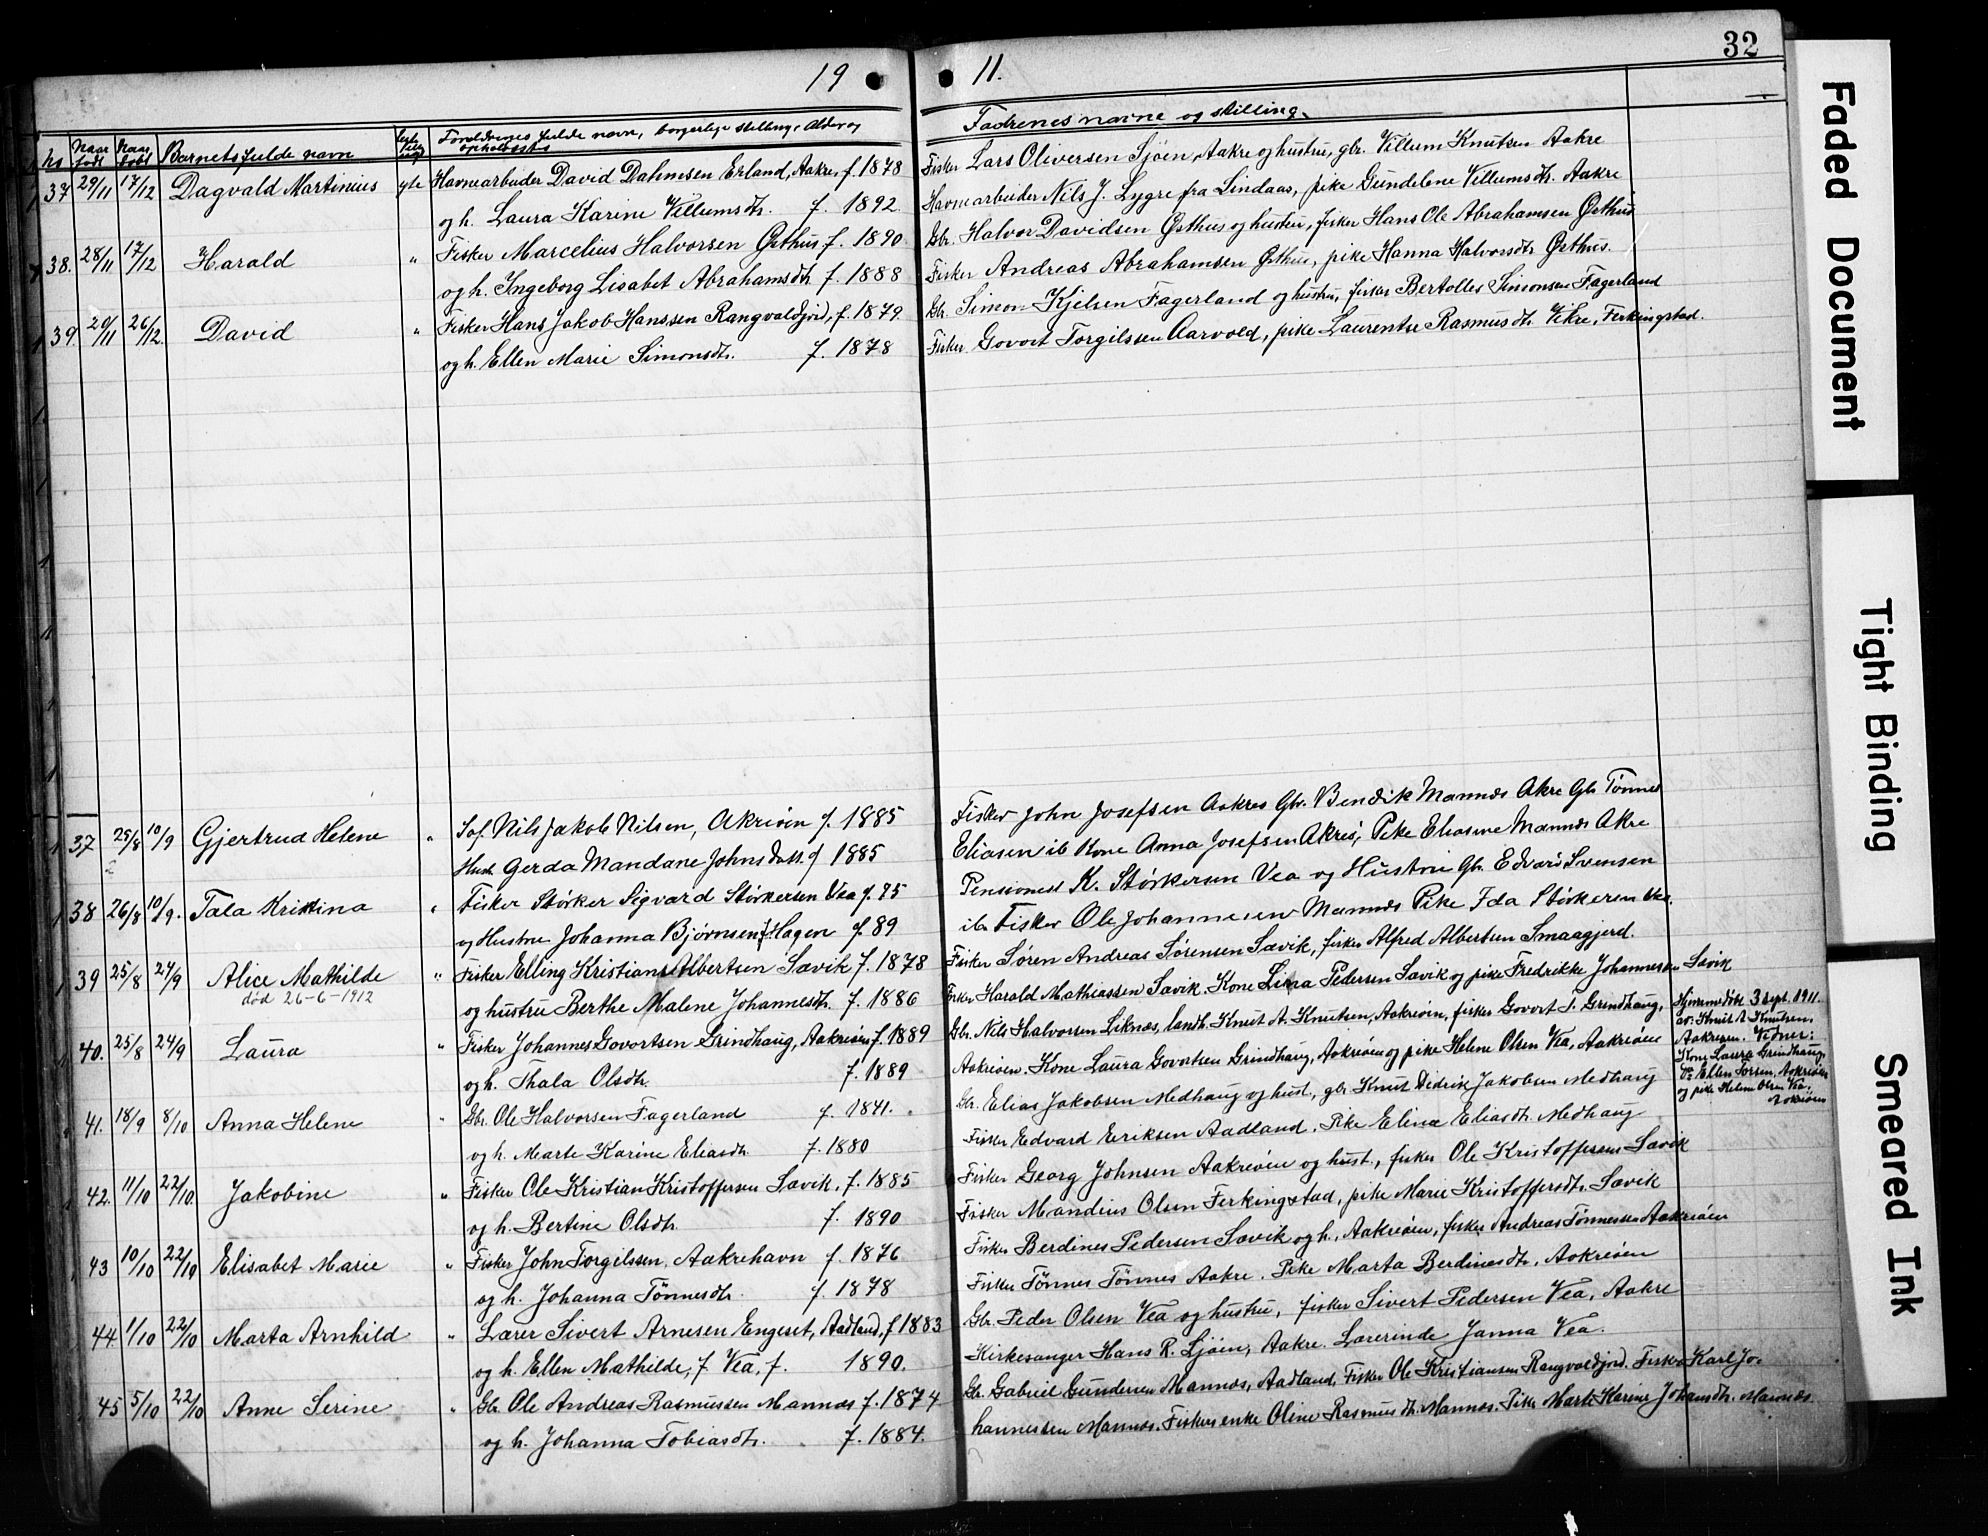 32
19 11.
No Naar født Naar døbt Barnets fulde navn Forældrenes fulde navn, borgerlige stilling, Alder og opholdssted Fadrenes navne og stilling.
37 29/11 17/12 Dagvald Martinius gte Havnearbeider David Dahmsen Erland, Aakre, f. 1878 Fisker Lars Oliversen Sjøen, Aakre og hustru, gbr. Villum Knutsen Aakre
og h. Laura Karine Villumsdtr. f. 1892. Havnearbeider Nils J. Lygre fra Lindaas, pike Gundelene Villumsdtr. Aakre
38. 28/11 17/12 Harald " Fisker Marcelius Halvorsen Østhus f. 1890 Gbr. Halvor Davidsen Østhus og hustru, fisker Hans Ole Abrahamsen Østhus
og h. Ingeborg Lisabet Abrahamsdtr f. 1888 Fisker Andreas Abrahamsen Østhus, pike Hanna Halvorsdtr Østhus.
39. 29/11 26/12. David " Fisker Hans Jakob Hanssen Rangvaldjord, f. 1879. Gbr. Simon Kjelsen Fagerland og hustru, fisker Bertolles Simonsen Fagerland
og h. Ellen Marie Simonsdtr. f. 1878 Fisker Govort Torgilssen Aarvold, pike Laurentse Rasmusdtr. Vikre, Ferkingstad.
37 25/8 10/9 Gjertrud Helene " Sof. Nils Jakob Nilsen, Akreøen f. 1885 Fisker John Josefsen Aakres Gbr. Bendik Mannes Akre Gbr Tønnes
Hust. Gerda Mandane Johns Datt. f 1885 Eliasen ib Kone Anna Josefsen Akreø, Pike Eliasine Mannes Akre
38 26/8 10/9. Tala Kristina " Fisker Størker Sigvard Størkersen Vea f. 85 Pensionest K. Størkersen Vea og Hustru Gbr. Edvard Svensen
og Hustru Johanna Bjørnsen f. Hagen f. 89 ib. Fisker Ole Johannesen Mannes Pike Ida Størkersen Vea.
39 25/8 24/9 Alice Mathilde " Fisker Elling Kristian Albertsen Sævik f. 1878 Fisker Søren Andreas Sørensen Sævik, fisker Alfred Albertsen Smaagjerd.
død 26-6-1912 og hustru Berthe Malene Johannesdtr. f. 1886 Fisker Harald Mathiassen Sævik. Kone Lina Pedersen Sævik og pike Fredrikke Johannesen Sævik
40. 25/8 24/9 Laura " Fisker Johannes Govortsen Grindhaug, Aakreøen f. 1889 Gbr. Nils Halvorsen Liknæs, landh. Knut A. Knutsen, Aakreøen, fisker Govort T. Grindhaug,
og h. Thala Olsdtr. f. 1889 Aakreøen. Kone Laura Govortsen Grindhaug, Aakreøen og pike Helene Olsen Vea, Aakreøen
Hjemmedøbt 3 sept. 1911.
av: Knut A Knutsen,
Aakreøen. Vidner:
Kone Laura Grindhaug,
Ellen Torsen, Aakreøen
og pike Helene Olsen Vea,
Aakreøen
41. 18/9 8/10 Anna Helene " Gbr. Ole Halvorsen Fagerland f. 1841. Gbr. Elias Jakobsen Medhaug og hust., gbr. Knut Didrik Jakobsen Medhaug
og h. Marte Karine Eliasdtr. f. 1880 Fisker Edvard Eriksen Aadland. Pike Eline Eliasdtr. Medhaug
42. 11/10 22/10. Jakobine " Fisker Ole Kristian Kristoffersen Sævik. f. 1885 Fisker Georg Johnsen Aakreøen og hust., fisker Ole Kristoffersen Sævik
og h. Bertine Olsdtr. f. 1890 Fisker Mandius Olsen Ferkingstad, pike Marie Kristoffersdtr. Sævik
43 10/10 22/10 Elisabet Marie " Fisker John Torgilssen, Aakrehavn f. 1876 Fisker Berdines Pedersen Sævik og h., Aakreøen, fisker Andreas Tønnessen Aakreøen
og h. Johanna Tønnesdtr. f. 1878 Fisker Tønnes Tønnes Aakre. Pike Marta Berdinesdtr, Aakreøen
44. 1/10 22/10 Marta Arnhild " Lærer Sivert Arnesen Engeset, Aadland, f 1883 Gbr. Peder Olsen Vea og hustru, fisker Sivert Pedersen Vea, Aakre
og h. Ellen Mathilde, f. Vea, f. 1890. Kirkesanger Hans R. Sjøen, Aakre. Lærerinde Janna Vea.
45 5/10 22/10 Anne Serine " Gbr. Ole Andreas Rasmussen Mannes f. 1874 Gbr. Gabriel Gundersen Mannes, Aadland, Fisker Ole Kristiansen Rangvaldjord. Fisker Karl Jo-
og h. Johanna Tobiasdtr. f. 1884. hannessen Mannes. Fiskers enke Oline Rasmusdtr. Mannes. Pike Marte Karine Johansdtr. Mannes.
Faded Document
Tight Binding
Smeared Ink